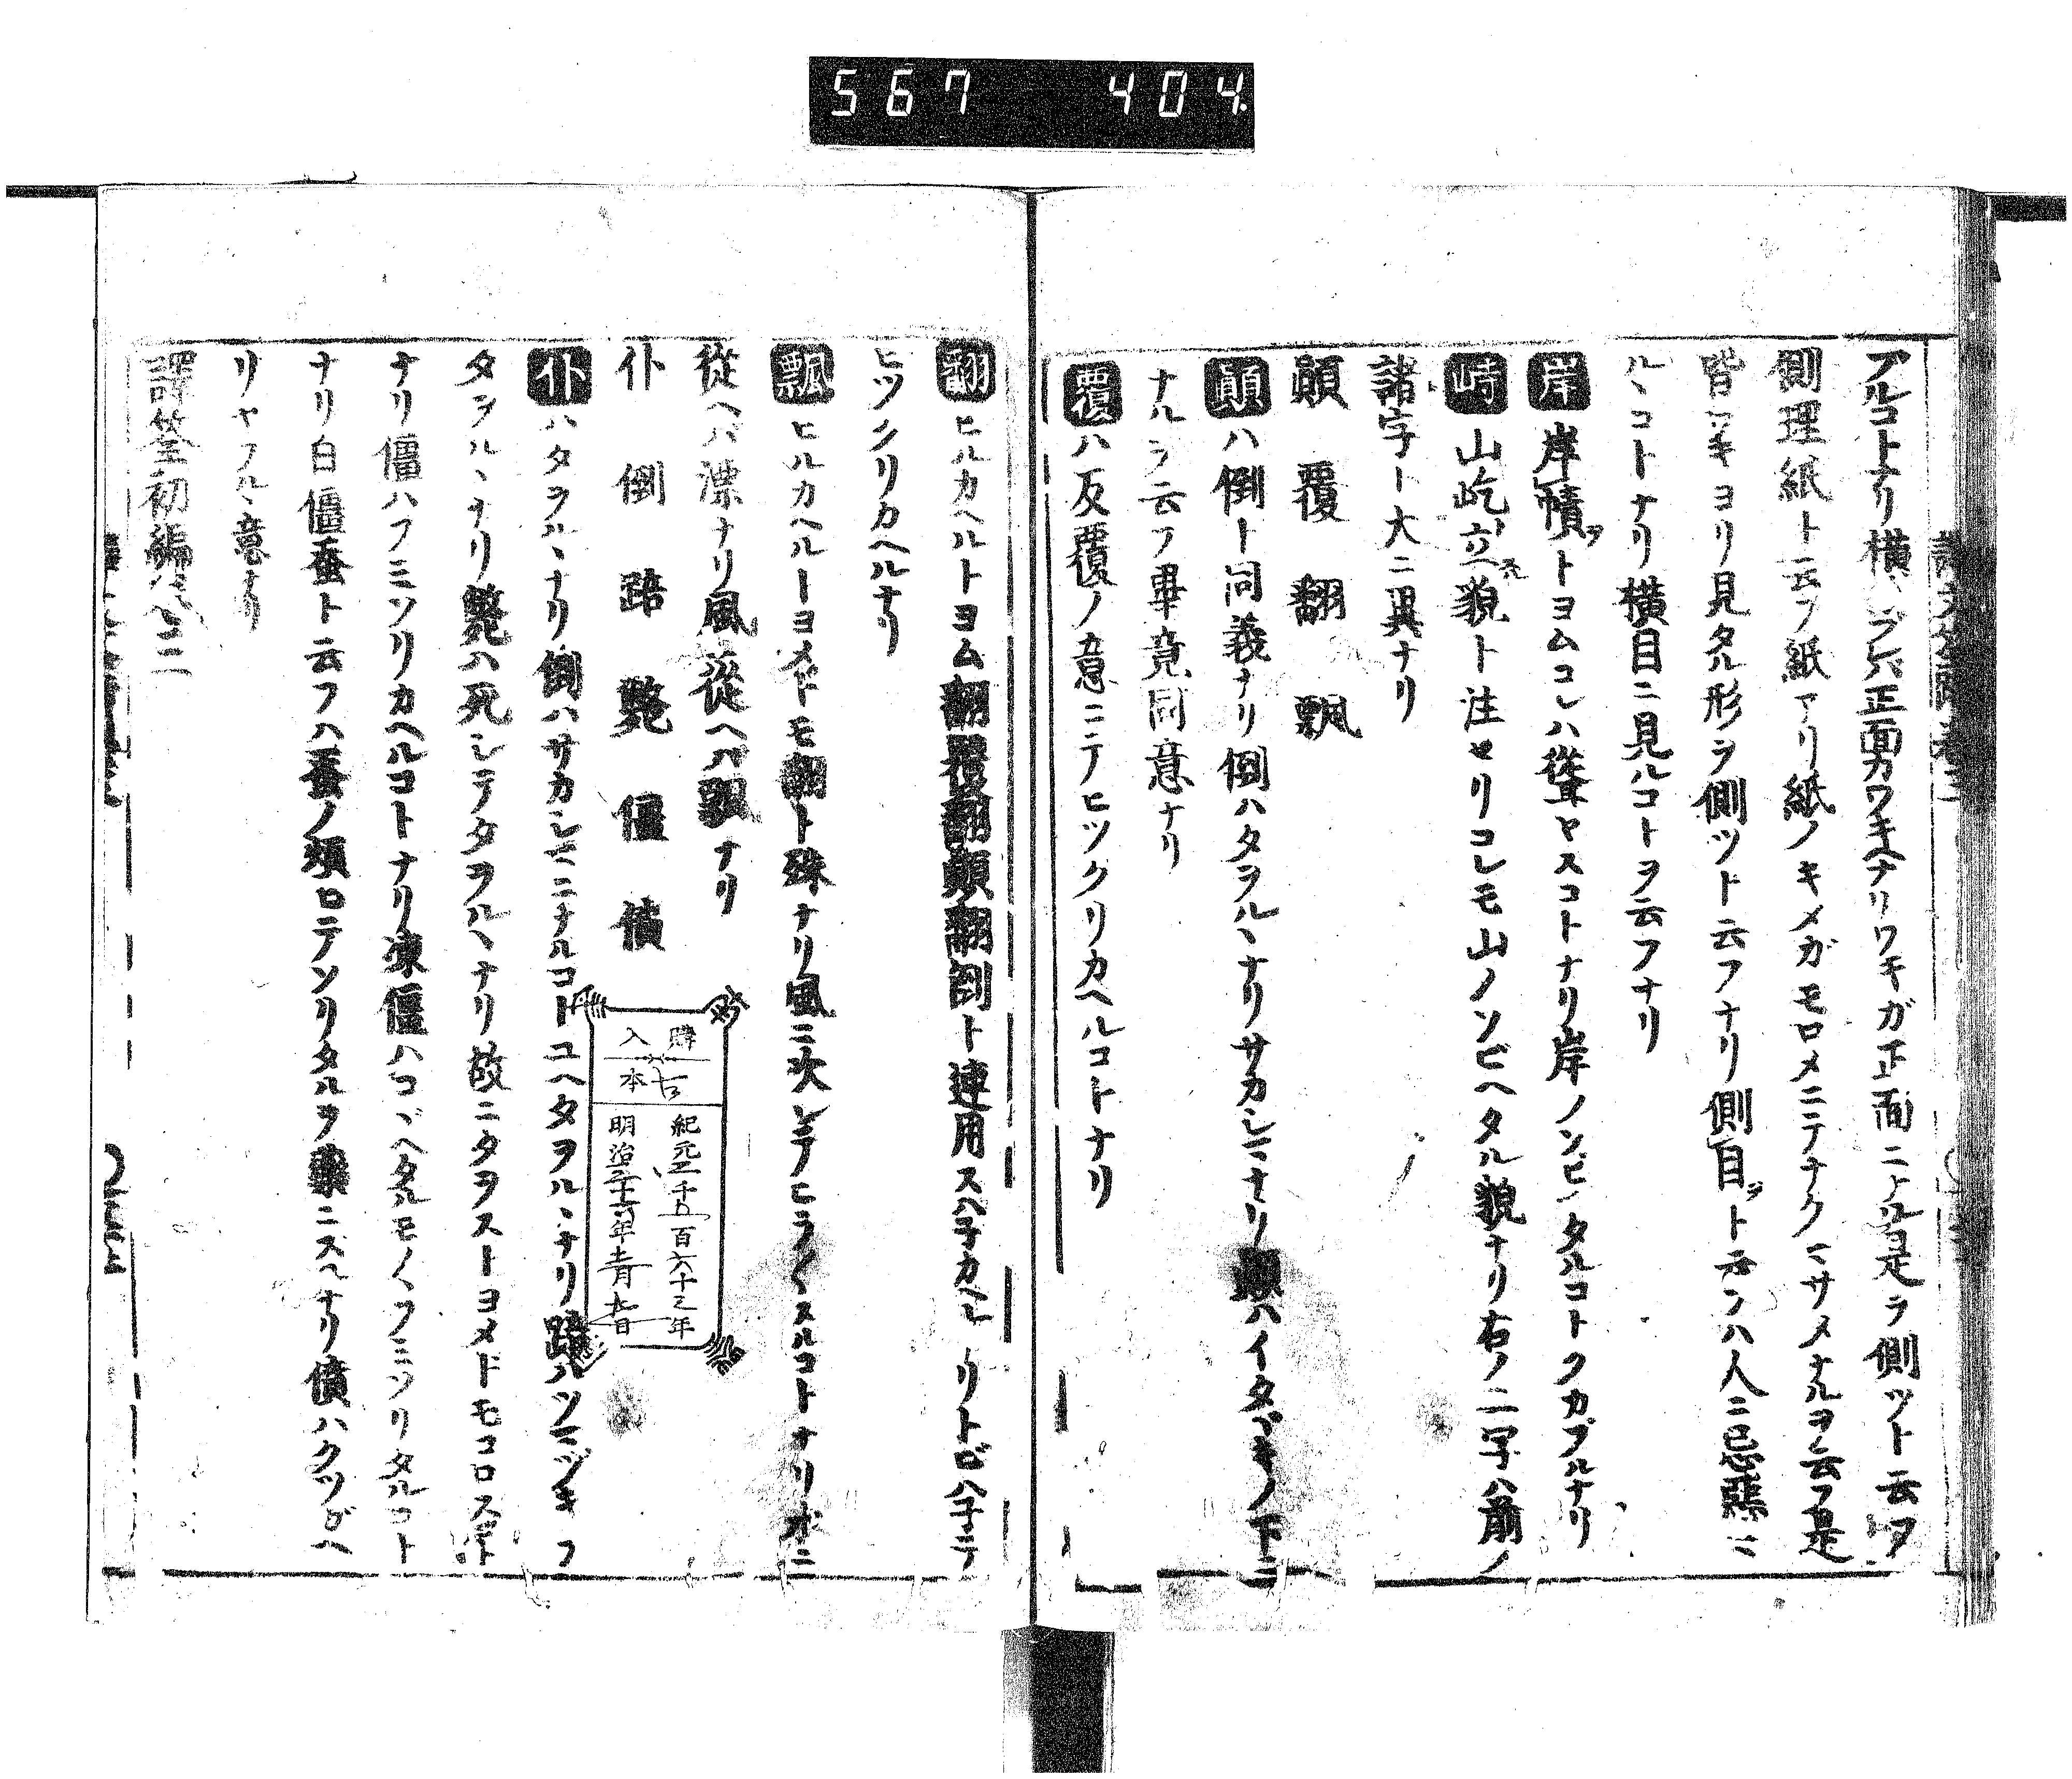 567 404
アルコトナリ横ハシラバ正面カワキヘナリワキガ正面ニナル是ヲ側ツト云フ
側理紙ト云フ紙アリ紙ノキメガモロメニテナクニサメナルヲ云フ是
皆ワキヨリ見タル形ヲ側ツト云フナリ側目ヲト云ハ人ニ忌悪ニ
ルヽコトナリ横目ニ見ルコトヲ云フナリ
岸 岸幘ヲトヨムコレハ聳ヤスコトナリ岸ノソビヘタルコトクカブルナリ
峙 山屹立貌ト注セリコレモ山ノソビヘタル貌ナリ右ノ二字ハ前ノ
諸字ト大ニ異ナリ
顛 覆 翻 飄
顛ハ倒ト同義ナリ倒ハタヲルヽナリサカシマナリ顛ハイタヾキノ下ニ
ナルヲ云フ畢竟同意ナリ
覆ハ反覆ノ意ニテヒツクリカヘルコトナリ
翻 ヒルカヘルトヨム翻覆翻顛翻倒ト連用スハ子カヘリトビハ子テ
ヒツソリカヘルナリ
飄 ヒルカヘルトヨメドモ翻ト殊ナリ風ニ吹レテヒラ〱スルコトナリ水ニ
從ヘバ漂ナリ風ニ從ヘバ飄ナリ
仆 倒 踣 斃 僵 僨
仆ハタヲルヽナリ倒ハサカシマニナルコトユヘタヲルヽナリ踣ハツマヅキフ
タヲルヽナリ斃ハ死シテタヲルヽナリ故ニタヲストヨメドモコロスト
ナリ僵ハフミソリカヘルコトナリ凍僵ハコヾヘタルモノヽフミソリタルコト
ナリ白僵蚕ト云フハ蚕ノ頭白テソリタルヲ薬ニスルナリ僨ハクツガヘ
リヤフルヽ意ナリ
譯筌初編巻之二
購入
古本
紀元二千五百六十三年
明治三十六年十一月九日